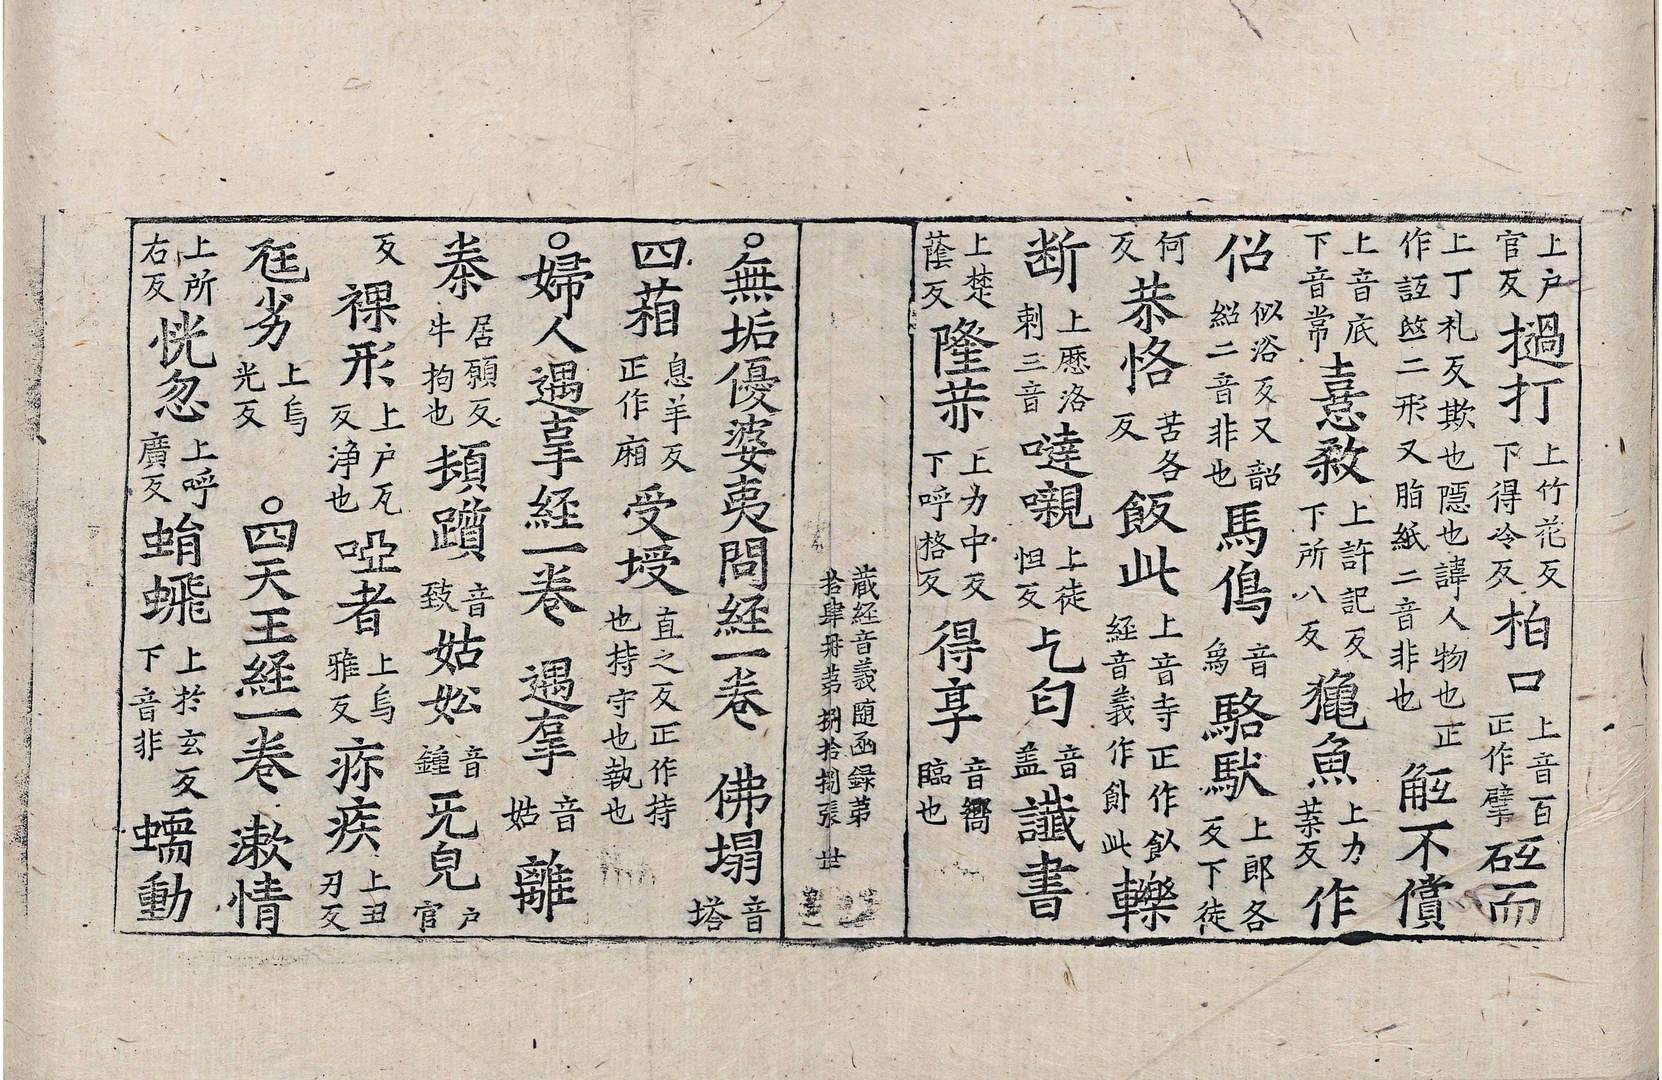 上戶官反撾打上竹花反下得冷反柏口上音百正作擘砡而
上丁礼反欺也隱也諱人物也正作詆㡳二形又脂紙二音非也觝不償
上音底下音常憙敹上許記反下所八反㺉魚上力蒸反作
佋似沼反又韶紹二音非也馬㑥音為駱馱上郎各反下徒
何反恭恪苦各反飯此上音寺正作飤経音義作飼此轢
断上歷洛剌三音噠嚫上徒怛反乞匄音盖讖書
上楚蔭反隆恭上力中反下呼格反得享音嚮臨也
藏経音義随函録苐拾肆冊苐捌拾捌張 世
○無垢優婆夷問経一卷 佛塌音塔
四葙息羊反正作廂受㨑直之反正作持也持守也執也
○婦人遇辜経一卷 遇辜音姑離
桊居願反牛拘也㨷躓音致姑妐音鍾旡皃戶官
反裸形上戶瓦反浄也啞者上烏雅反疢疾上丑刃反
尫劣上烏光反 ○四天王経一卷 漱情
上所右反恍忽上呼廣反蜎蜚上於玄反下音非蠕動